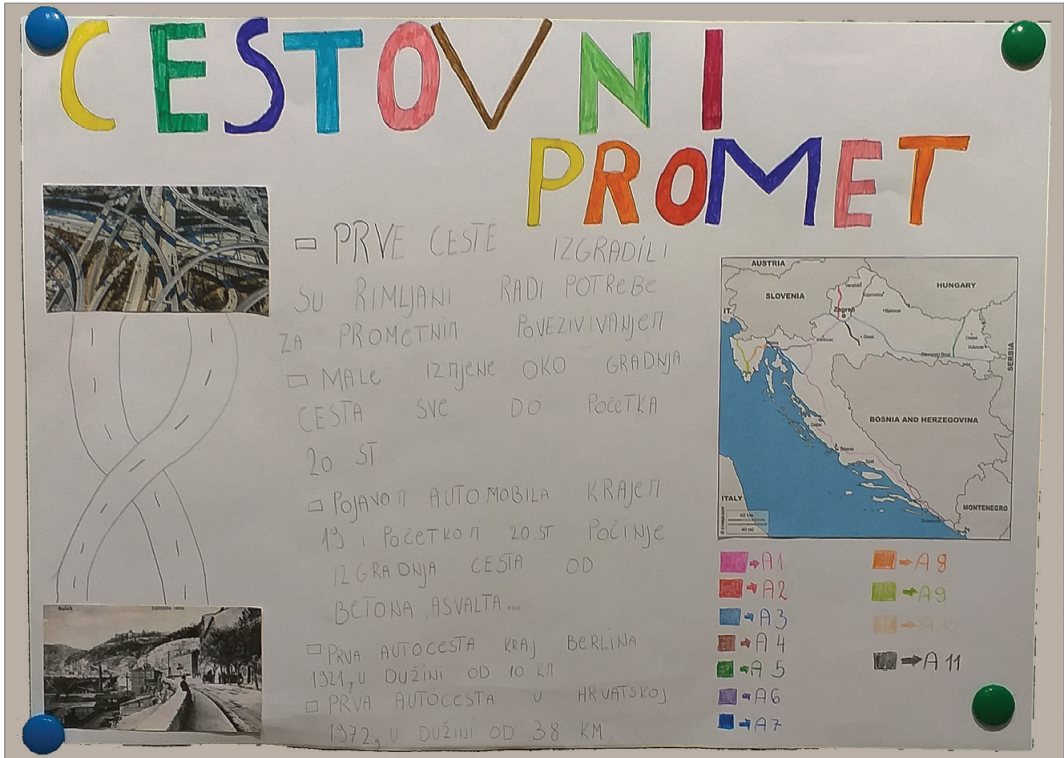 CESTOVNI
PROMET
PRVE CESTE IZGRADILI
SU RIMLJANI RADI POTReBe
ZA PROMETNIM POVEZIVIVANJEM
MALE IZMJENE OKO GRADNJA
CESTA SVE DO POČETKA
20 ST
POJAVOM AUTOMOBILA KRAJEM
19 i POČETKOM 20 ST POČINJE
IZGRADNJA CESTA OD
BETONA, ASVALTA...
PRVA AUTOCESTA KRAJ BERLINA
1921, U DUŽINI OD 10 KM
PRVA AUTOCESTA U HRVATSKOJ
1972, U DUŽINI OD 38 KM
AUSTRIA
SLOVENIA
HUNGARY
IT.
Zagreb
SERBIA
BOSNIA AND HERZEGOVINA
ITALY
MONTENEGRO
A1
A2
A3
A4
A5
A6
A7
A8
A9
A10
A11